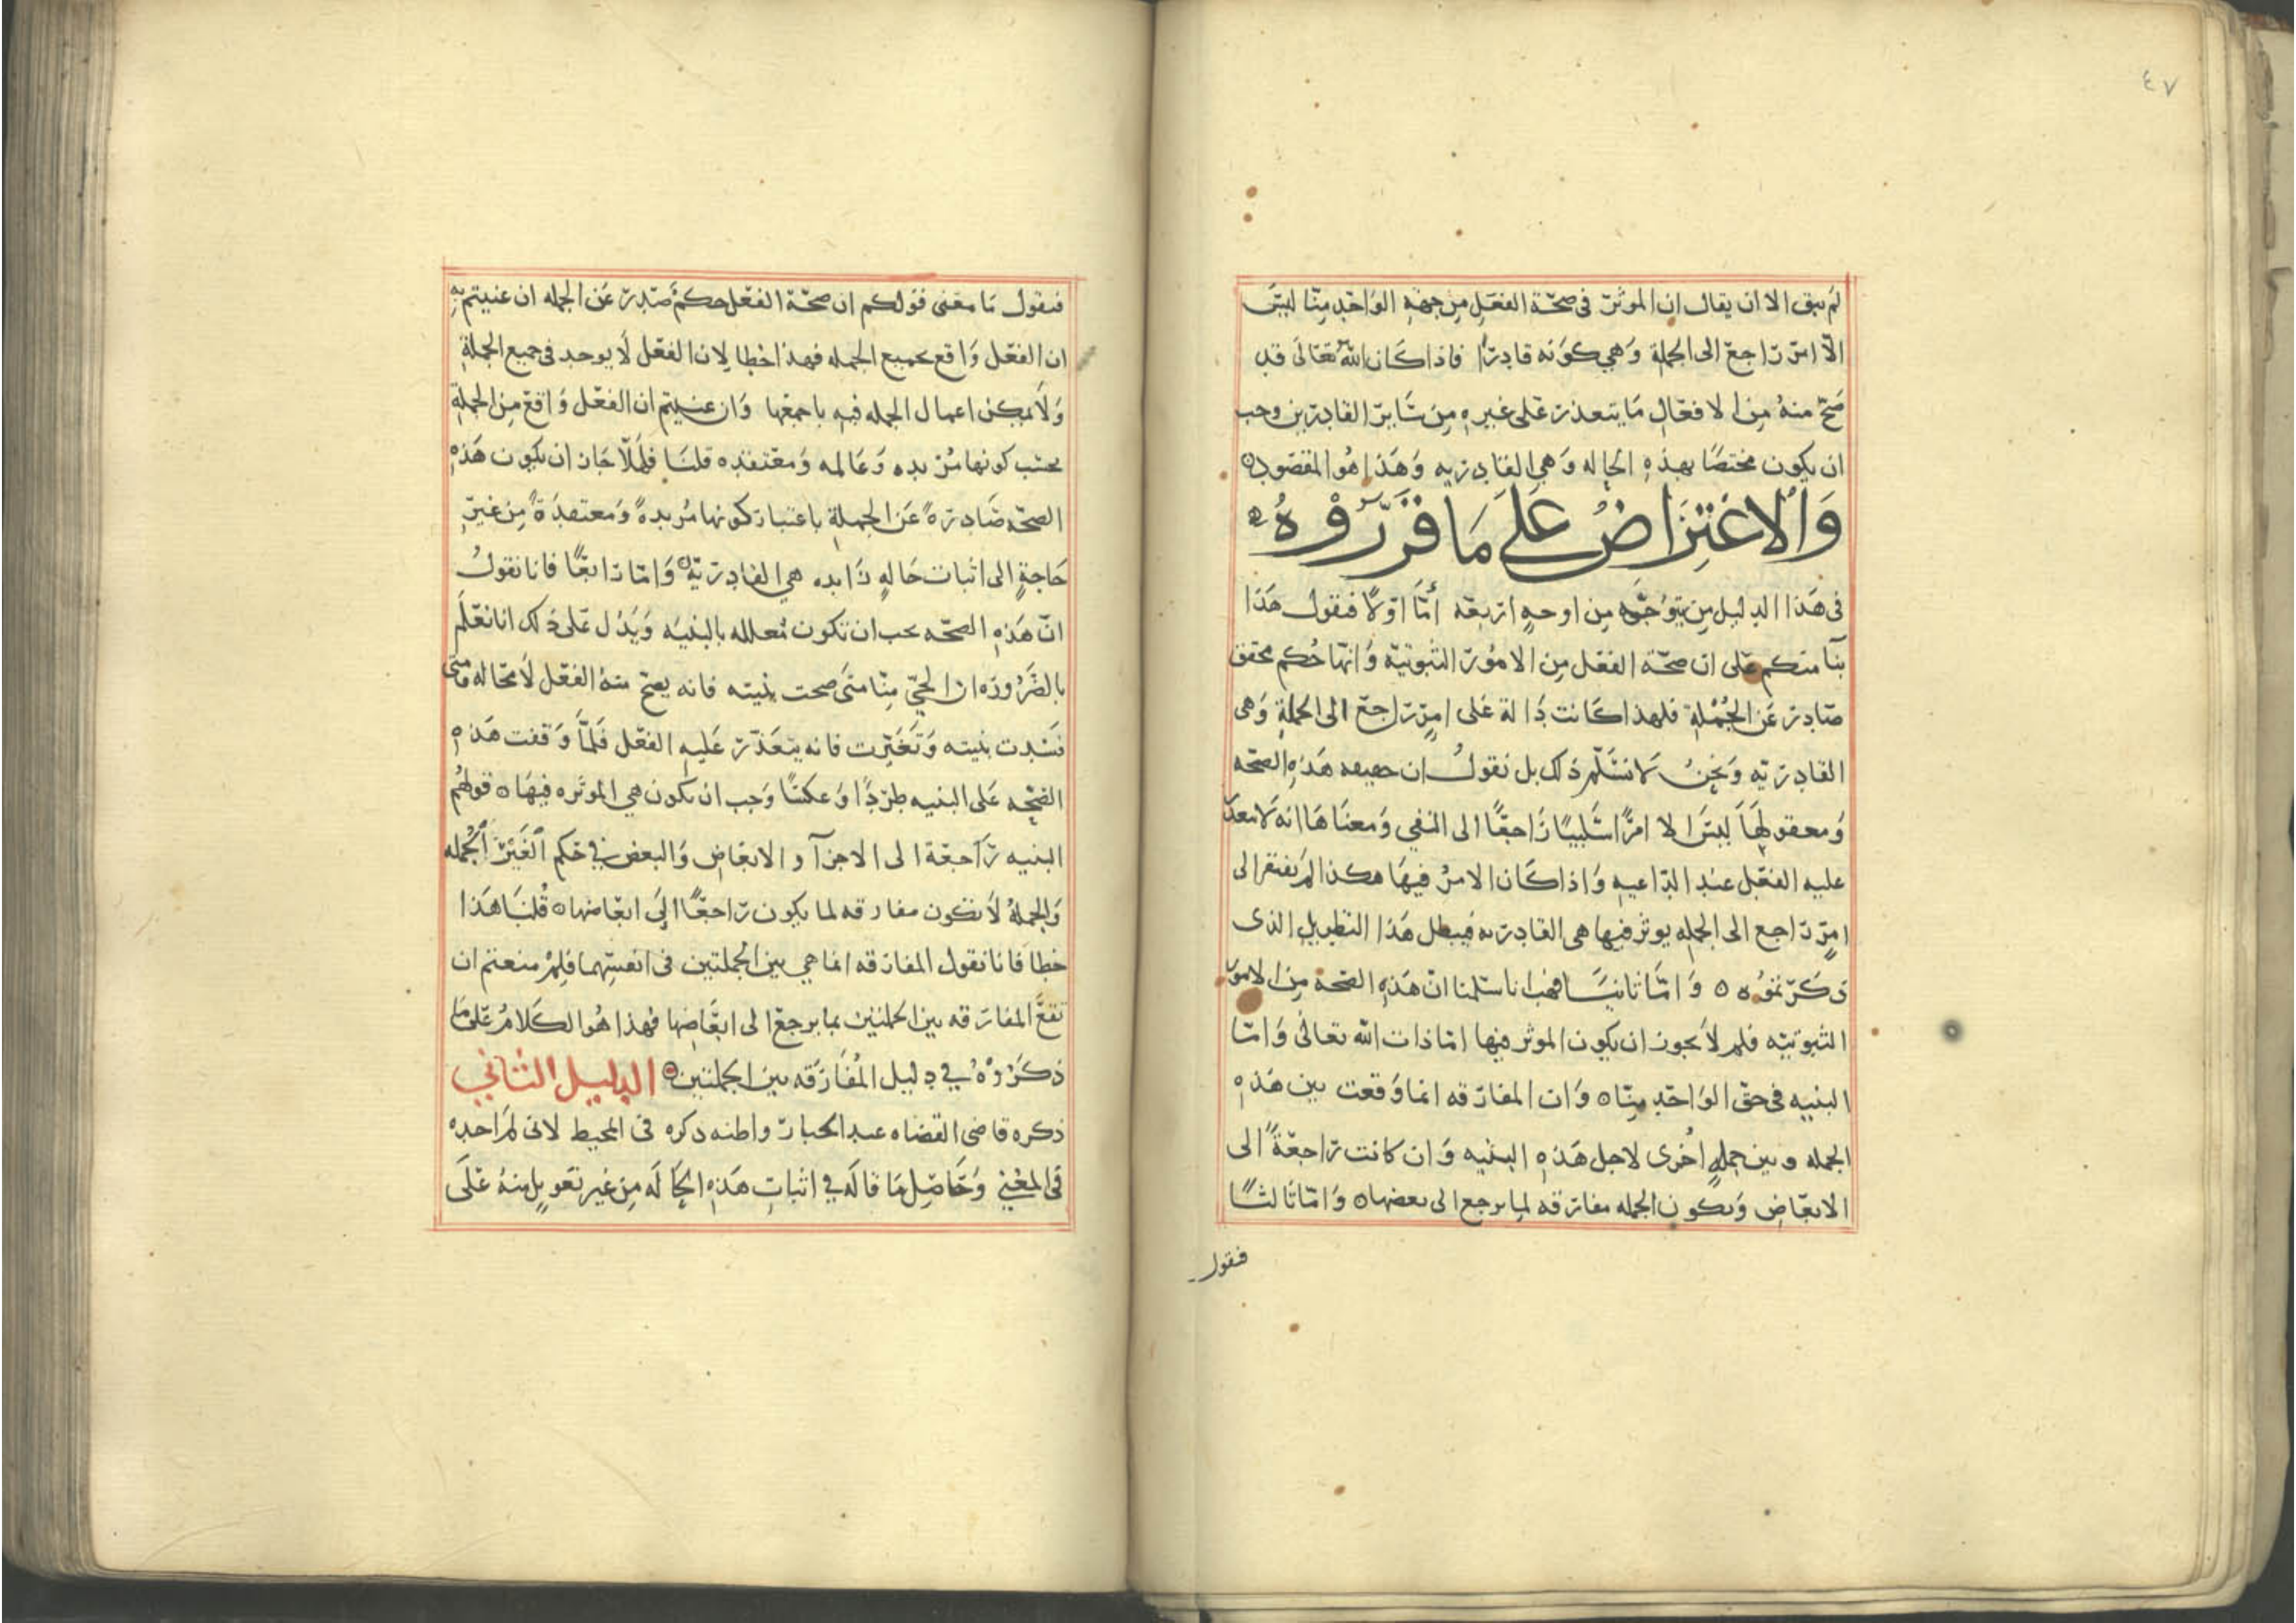 ٤٧
لم يبق الا ان يقال ان الموثر فى صحّة الفعل من جهة الواحد منّا ليس
الّا امر راجع الى الجملة وَهي كونه قادرًا فاذا كَان الله تعَالَى قد
صَحّ منهُ من الافعَال مَا يتعذر عَلى غيره من سَاير القادرين وجب
ان يكون مختصًا بهذه الحاله وَهي القادريه وَهَذا هُو المقصود
وَالاعْتِرَاضُ عَلَى مَا قَرَّرُوْهُ
فى هَذا الدليل من يتوجّه من اوجهٍ اربعَه أمّا اوّلًا فنقول هَذا
بنآ منكم عَلى ان صحّة الفعَل من الامُور الثبوتيّه وَانّهَا حُكم محقق
صَادر عَن الجُمْلة فلهذا كَانت دَالة عَلى امرٍ راجعٍ الى الجملة وَهى
القادريّه وَنحنُ لَا نسَلّم ذلك بل نقولُ ان حقيقه هَذه الصحّه
وَمعقولهَا ليسَ الا امرًا سَلبيًا رَاجعًا الى النفي وَمعنَاهَا انه لَا يتعذر
عليه الفعَل عند الدّاعيه وَاذا كَان الامرُ فيهَا هكذا لم يَفتقر الى
امرٍ رَاجع الى الجمله يوثر فيها هى القادريه فيبطل هَذا التطويل الذى
ذكرّتموُه ٥ وَامّا ثانيًا فهب انا سَلمنا انّ هَذه الصّحة من الامور
الثبوتيّه فلم لَا يجوز ان يكون الموثر فيها امّا ذات الله تعالىٰ وَامّا
البنيه فى حقّ الوَاحد منّا ٥ وَان المفارَقه انما وَقعت بين هَذه
الجمله وبين جملهٍ أخرى لاجل هَذه البنيه وَان كانت رَاجعَةً الى
الابعَاض وَيكون الجمله مفارَقه لما يرجع الى بعضها ٥ وَامّا ثَالثًا
فنقول
فنقول مَا معَنى قولكم ان صحّة الفعَل حكم صَدر عَن الجمله ان عنيتم به
ان الفعَل وَاقع بجميع الجمله فهذا خطا لان الفعَل لَا يوجد فى جميع الجملة
وَلَا يمكن اعمال الجمله فيه باجمعَها وَان عنيتم ان الفعَل وَاقع من الجملة
بحسَب كونها مُريده وَعَالمه وَمعتقده قلنَا فلمَ لَا جَاز ان يكون هَذه
الصحّه صَادرةً عَن الجملة باعتبار كونها مُريدةً وَمعتقدَةً من غير
حَاجةٍ الى اثبات حَالهٍ زَايده هي القادريّه وَامّا رَابعًا فانا نقولُ
انّ هَذه الصحّه يجب ان تكون مُعلله بالبنيَه وَيَدُل عَلى ذلك انا نعَلَم
بالضّروره ان الحيّ منّا متى صحت بنيته فانه يصح منهُ الفعَل لَا محَاله وَمتى
فسَدت بنيته وَتغَيّرت فانه يتعَذّر عَليه الفعَل فلمّا وَقفت هَذه
الصّحّه عَلى البنيه طَردًا وَعكسًا وَجب ان يكون هي الموثره فيهَا ٥ قولهُم
البنيه رَاجعَة الى الاجزآ والابعَاض وَالبعض فى حَكم الغَير الجُمله
وَالجملهُ لَا تكون مفارقه لما يكون رَاجعًا الَى ابعَاضها ٥ قُلنَا هَذا
خطا فَانا نقول المفارَقه انما هي بين الجملتين فى انفسهما فلمْ منعتم ان
تقعَ المفارَقه بين الجملتين بما يرجع الى ابعَاضِها فهذا هُو الكَلامُ عَلى مَا
ذكَرُوْهُ في دليل المُفَارَقه بين الجملتين الدليل الثاني
ذكره قاضى القضاه عبد الجبار واظنه ذكره فى المحيط لانى لمَ اجده
فى المغني وَحَاصِل مَا قالَه في اثبات هَذه الحَالَه من غير تعَويلٍ منهُ عَلَى